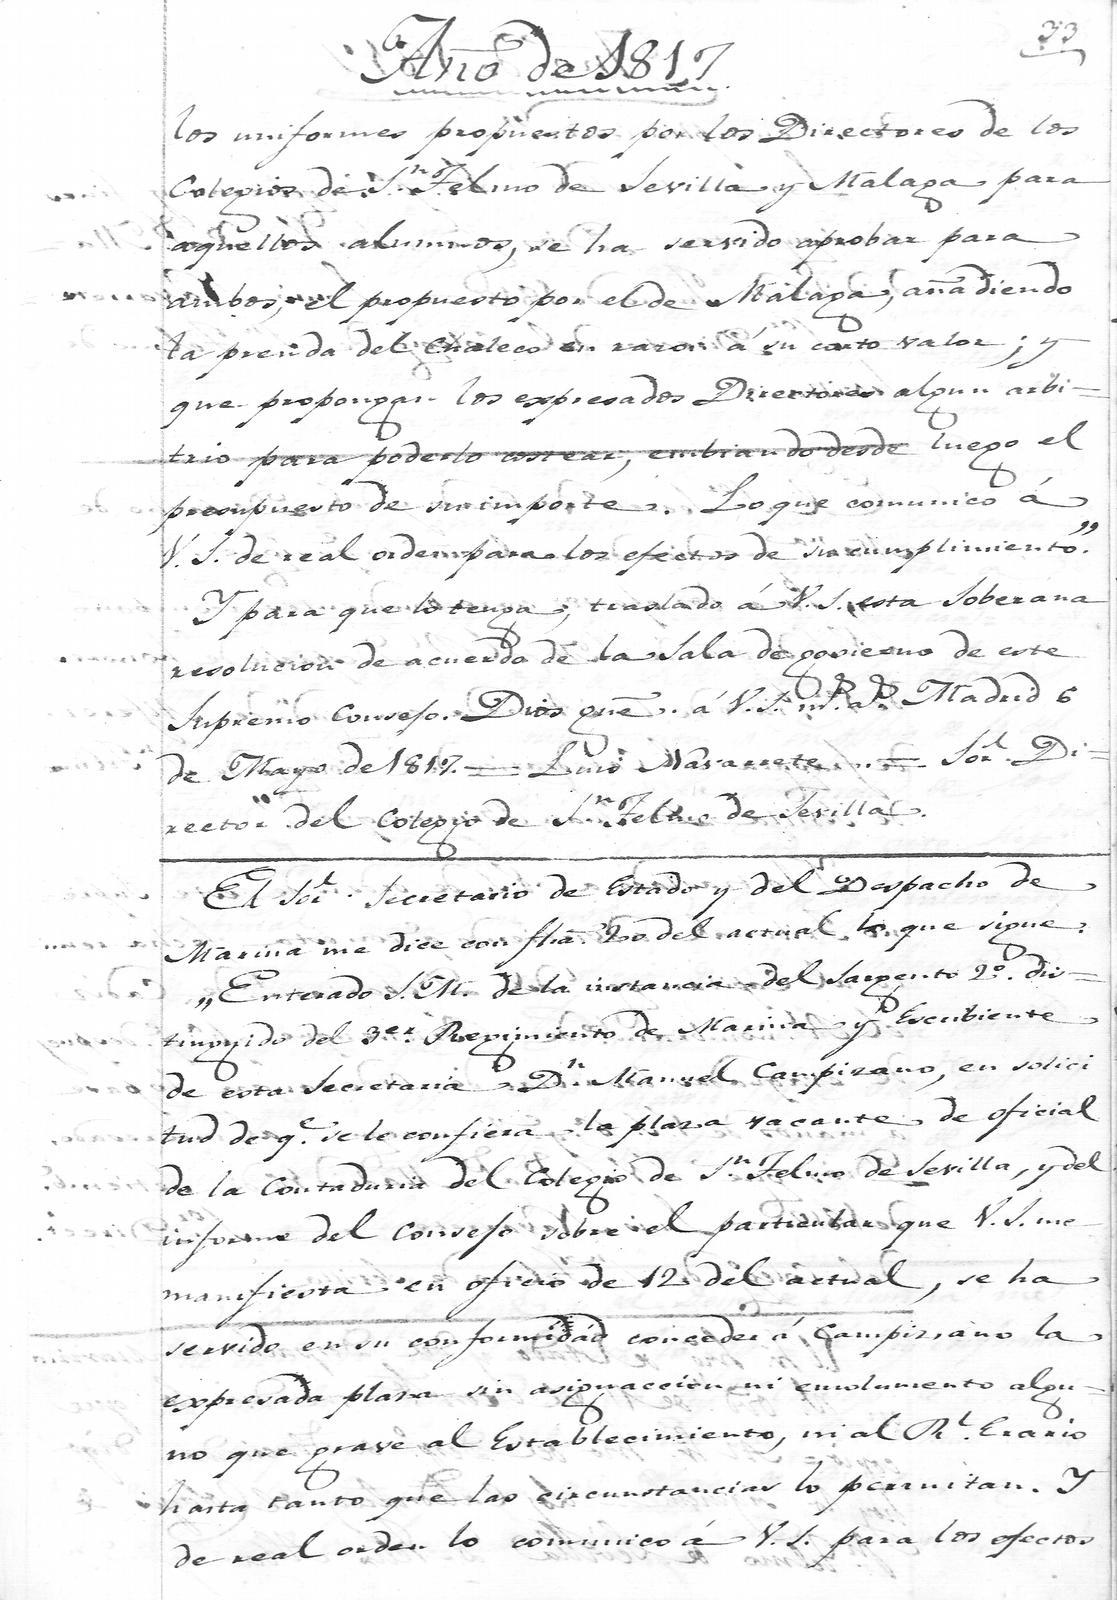 33
Año de 1817
los uniformes propuestos por los Directores de los
Colegios de Sn. Telmo de Sevilla y Malaga para
aquellos alumnos, se ha servido aprobar para
ambos, el propuesto por el de Málaga, añadiendo
la prenda del Chaleco en razon á su corto valor; y
que propongan los expresados Directores algun arbi=
trio para poderlo costear, embiando desde luego el
presupuesto de su importe. Lo que comunico á
V. S. de real orden para los efectos de su cumplimiento."
Y para que lo tenga, traslado á V. S. esta Soberana
resolucion de acuerdo de la Sala de govierno de este
Supremo Consejo. Dios gue. á V. S. ms. as. Madrid 6
de Mayo de 1817. = Luis Navarrete = Sor. Di=
rector del Colegio de Sn. Telmo de Sevilla.
El Sor. Secretario de Estado y del Despacho de
Marina me dice con fha. 20 del actual lo que sigue.
„Enterado S. M. de la instancia del Sargento 2o. dis=
tinguido del 3er. Regimiento de Marina y Escribiente
de esta Secretaria Dn. Manuel Campizano, en solici
tud de qe. se le confiera la plaza vacante de oficial
de la Contaduria del Colegio de Sn. Telmo de Sevilla, y del
informe del Consejo sobre el particular que V. S. me
manifiesta en oficio de 12 del actual, se ha
servido en su conformidad conceder á Campizano la
expresada plaza sin asignaccion ni emolumento algu-
no que grave al Establecimiento, ni al Rl. Erario
hasta tanto que las circunstancias lo permitan. Y
de real orden lo comunico á V. S. para los efectos